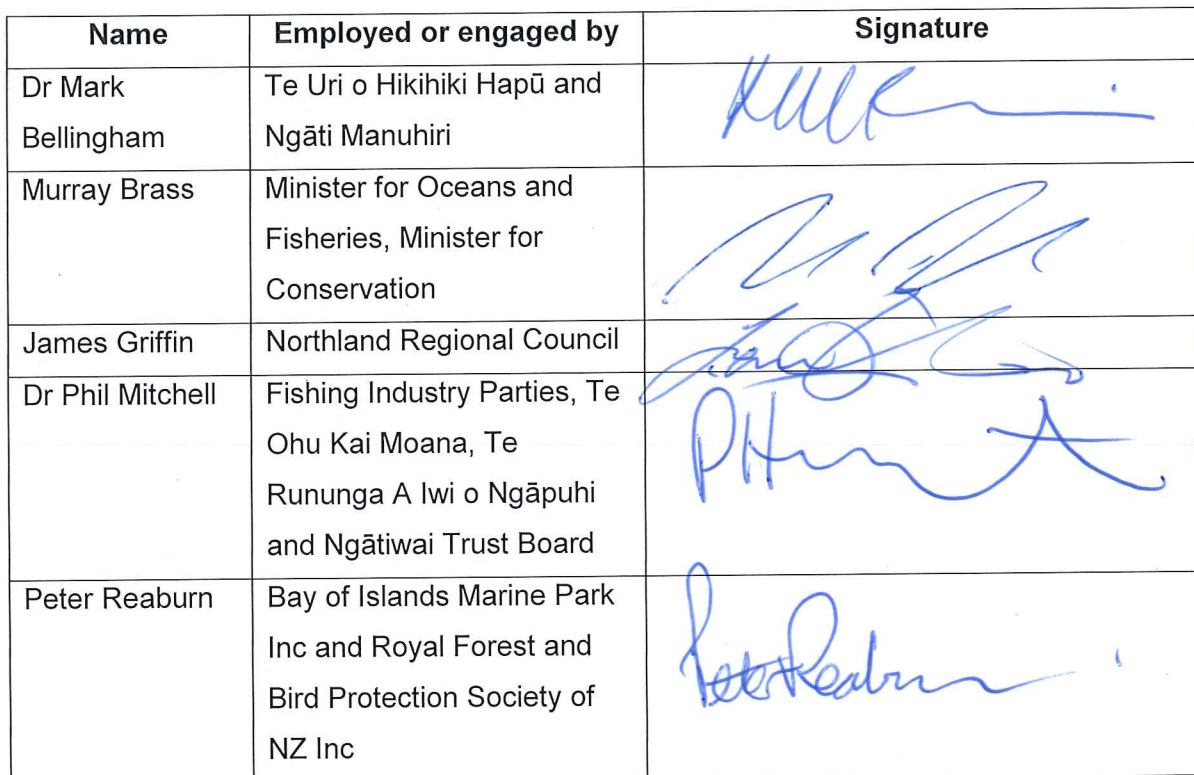 Name Employed or engaged by Signature
Dr Mark Te Uri o Hikihiki Hapū and
Bellingham Ngāti Manuhiri
Murray Brass Minister for Oceans and
Fisheries, Minister for
Conservation
James Griffin Northland Regional Council
Dr Phil Mitchell Fishing Industry Parties, Te
Ohu Kai Moana, Te
Rununga A Iwi o Ngāpuhi
and Ngātiwai Trust Board
Peter Reaburn Bay of Islands Marine Park
Inc and Royal Forest and
Peter Reaburn
Bird Protection Society of
NZ Inc